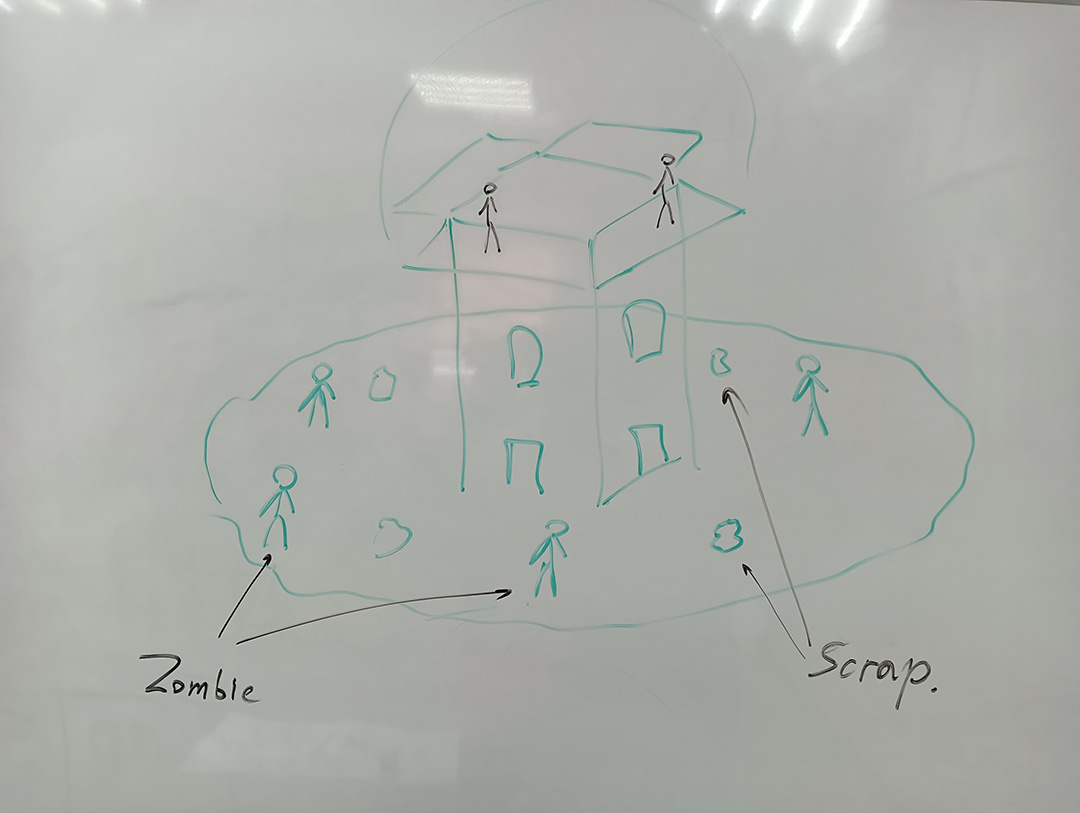 Zombie
Scrap.